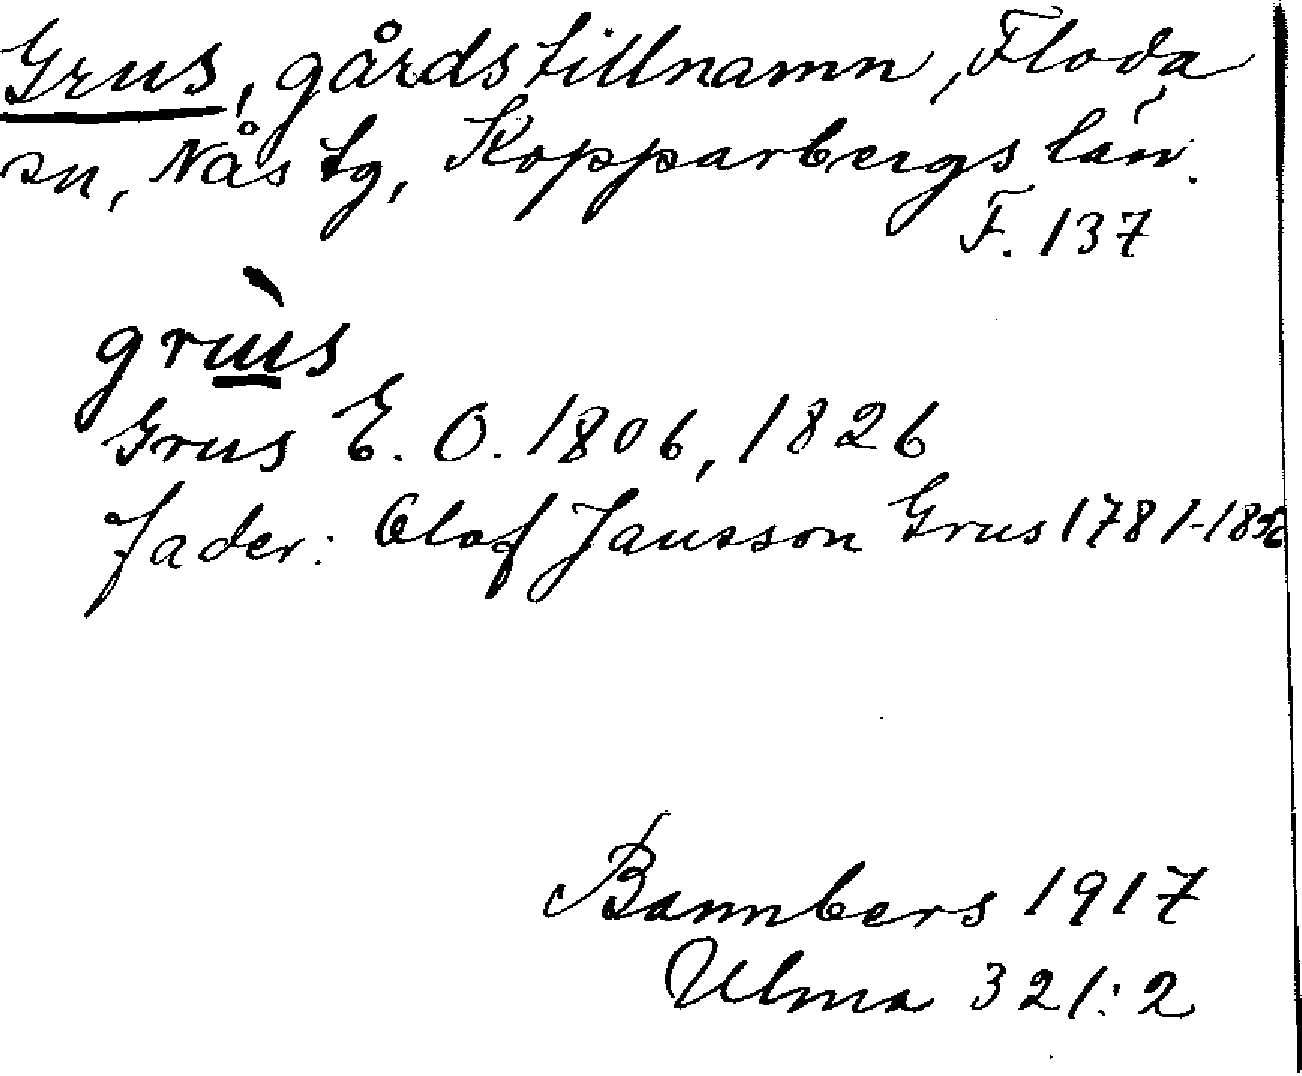 Grus, gårdstillnamn, Floda
sn, Nås tg, Kopparbergs län.
F. 137
grùs
Grus E. O. 1806, 1826
fader: Olof Jansson Grus 1781-
Bannbers 1917
Ulma 321:2